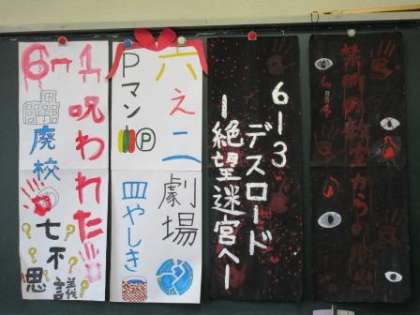 6-1
呪われた
廃校
七不議
思
六え二
劇場
Pマン
P
皿やしき
6-3
デスロード
-絶望迷宮へ-
禁断の教室からの